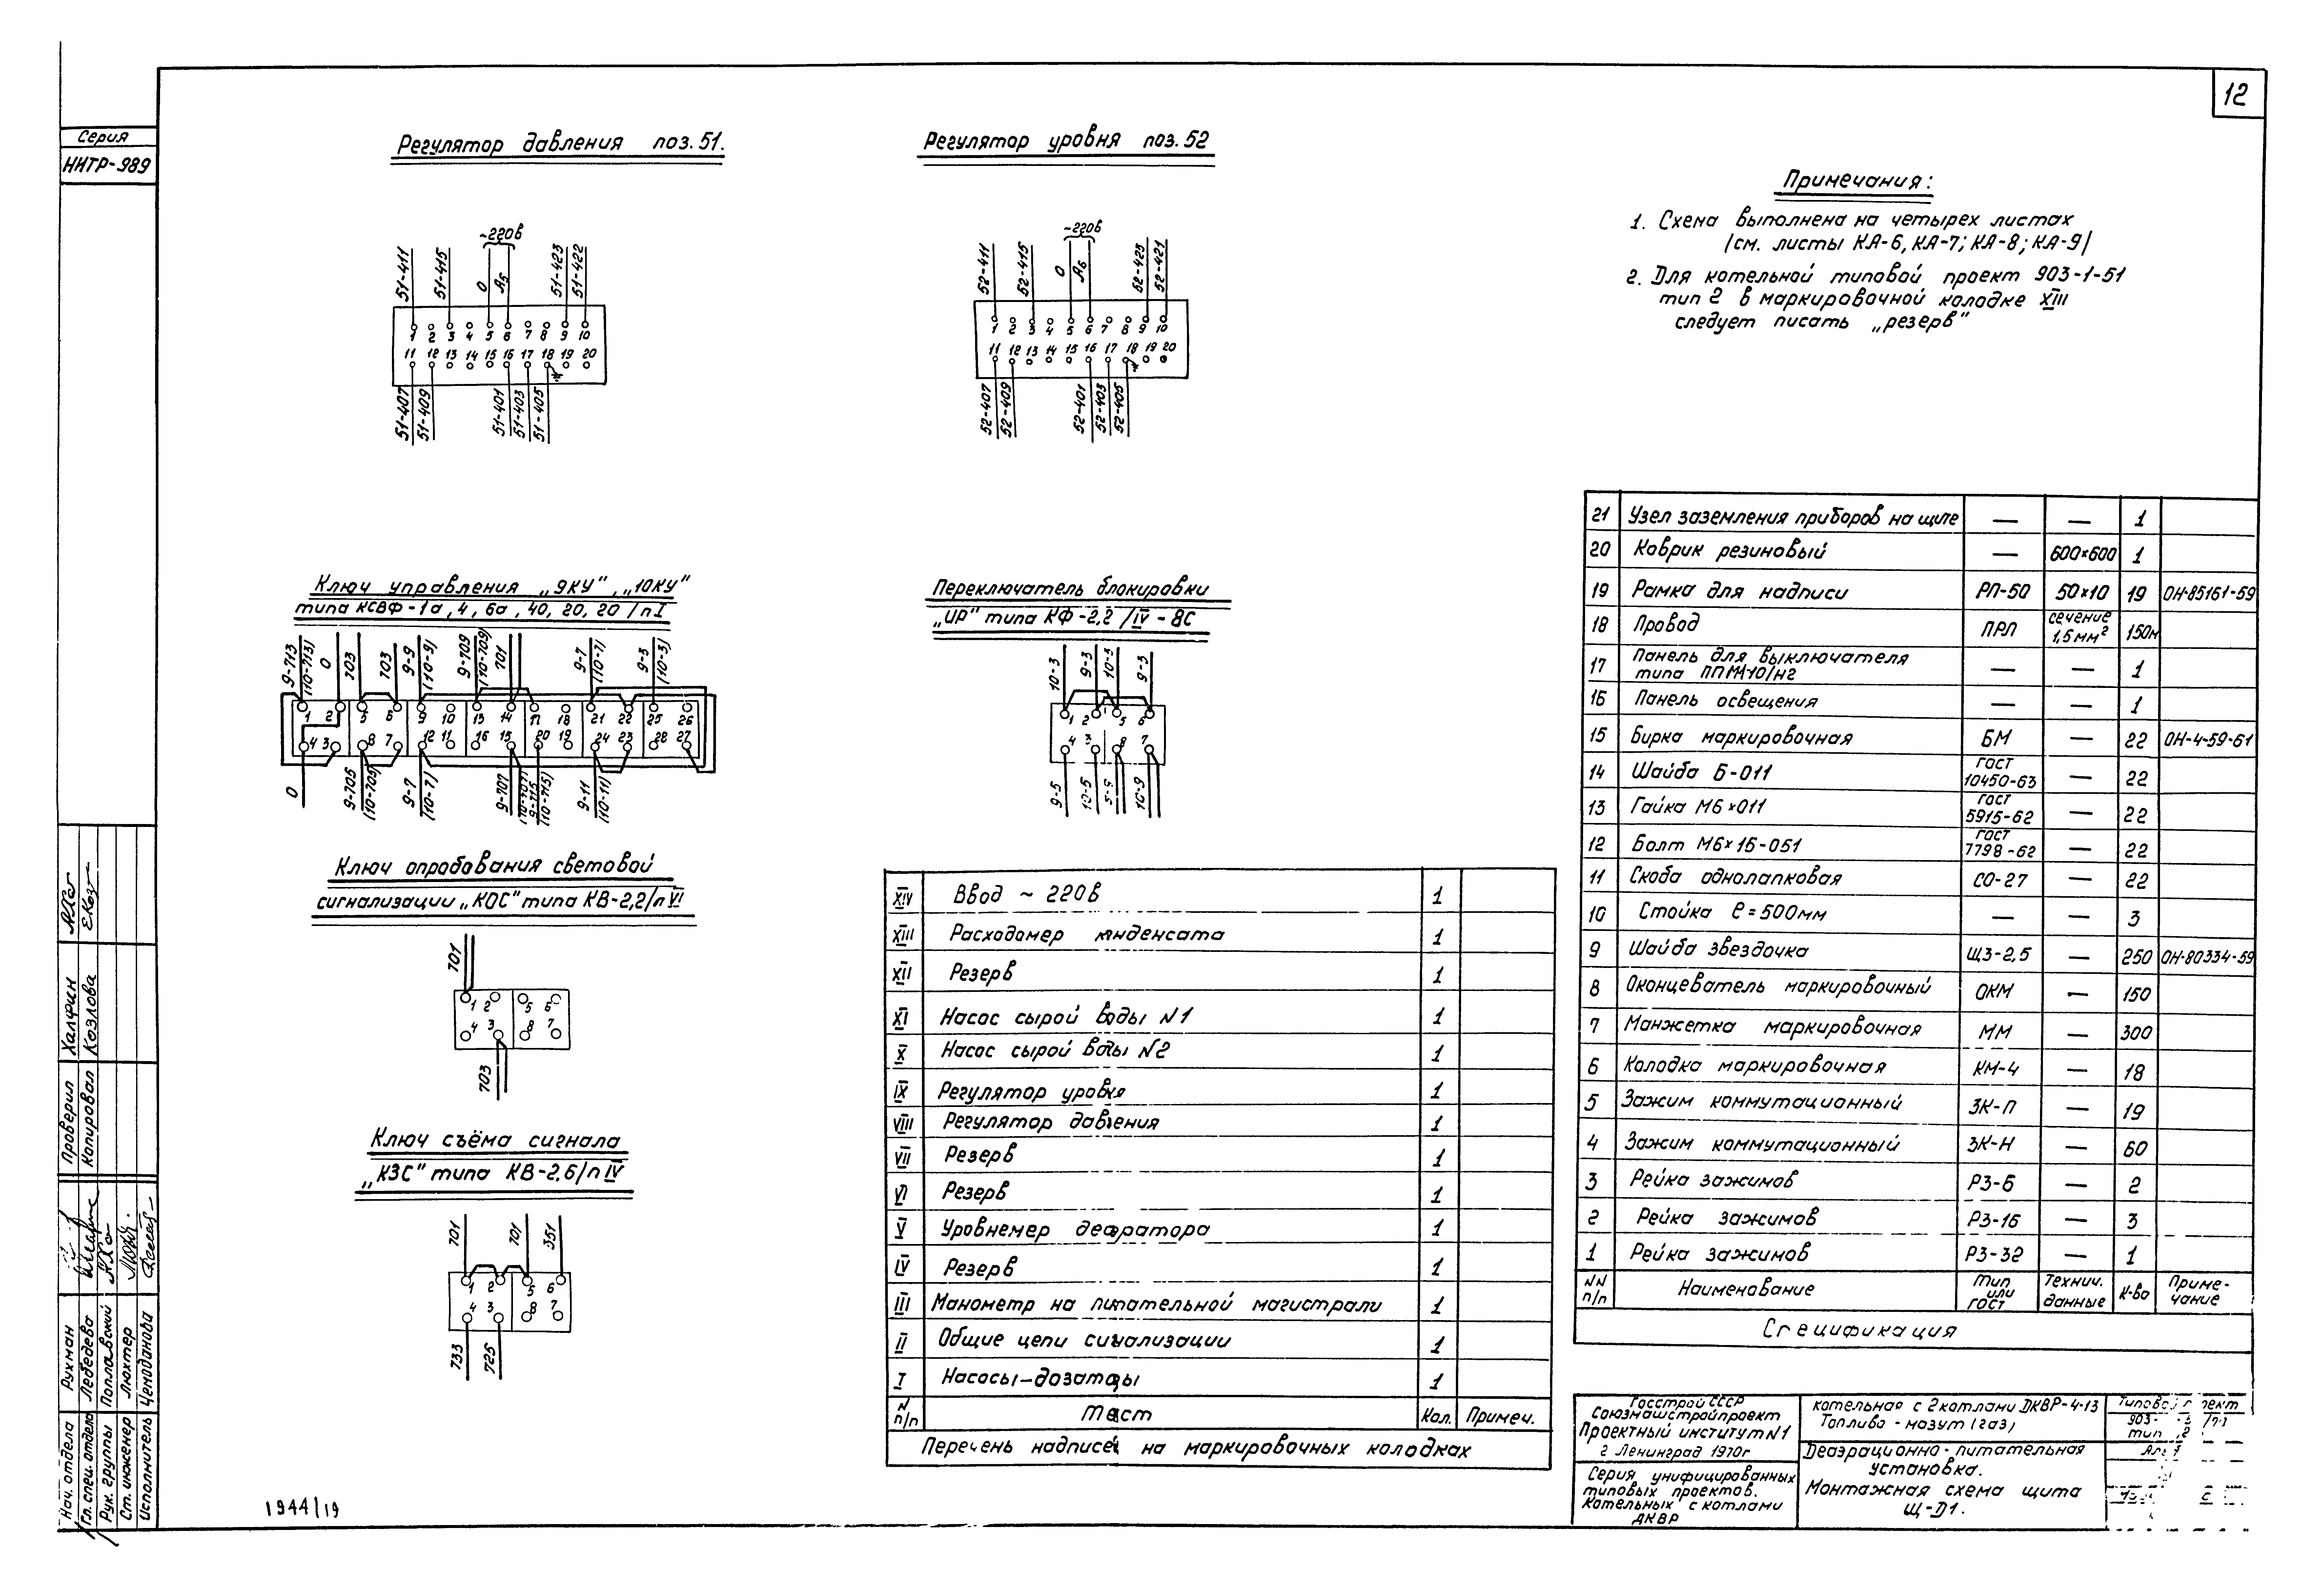 12
Серия
НИТР-989
Регулятор давления поз. 51.
~220в
51-411
51-415
0
51-423
51-422
1 2 3 4 5 6 7 8 9 10
11 12 13 14 15 16 17 18 19 20
51-407
51-409
51-401
51-403
51-405
Регулятор уровня поз. 52
~220в
52-411
52-415
0
52-423
52-421
1 2 3 4 5 6 7 8 9 10
11 12 13 14 15 16 17 18 19 20
52-407
52-409
52-401
52-403
52-405
Примечания:
1. Схема выполнена на четырех листах
/см. листы КА-6, КА-7; КА-8; КА-9/
2. Для котельной типовой проект 903-1-51
тип 2 в маркировочной колодке XIII
следует писать „резерв"
Ключ управления „9КУ", „10КУ"
типа КСВФ-1а, 4, 6а, 40, 20, 20 /п I
9-713
(10-713)
0
703
703
9-9
(10-9)
9-709
(10-709)
701
9-7
(10-7)
9-3
(10-3)
1 2 5 6 9 10 13 14 17 18 21 22 25 26
4 3 8 7 12 11 16 15 20 19 24 23 28 27
0
9-705
(10-705)
9-7
(10-7)
9-707
(10-707)
9-715
(10-715)
9-11
(10-11)
Переключатель блокировки
„ИР" типа КФ-2,2 /IV - 8С
10-3
9-3
10-3
9-3
1 2 5 6
4 3 8 7
9-5
10-5
10-9
Ключ опробования световой
сигнализации „КОС" типа КВ-2,2/п VI
701
1 2 5 6
4 3 8 7
703
Ключ съёма сигнала
„КЗС" типа КВ-2,6/п IV
701
701
351
1 2 5 6
4 3 8 7
733
725
XIV Ввод ~ 220в 1
XIII Расходомер конденсата 1
XII Резерв 1
XI Насос сырой воды N1 1
X Насос сырой воды N2 1
IX Регулятор уровня 1
VIII Регулятор давления 1
VII Резерв 1
VI Резерв 1
V Уровнемер деаэратора 1
IV Резерв 1
III Манометр на питательной магистрали 1
II Общие цепи сигнализации 1
I Насосы-дозаторы 1
N п/п Текст Кол. Примеч.
Перечень надписей на маркировочных колодках
21 Узел заземления приборов на щите — — 1
20 Коврик резиновый — 600×600 1
19 Рамка для надписи РП-50 50×10 19 ОН-85161-59
18 Провод ПРЛ сечение 1,5мм² 150м
17 Панель для выключателя
типа ППМ-10/н2 — — 1
16 Панель освещения — — 1
15 Бирка маркировочная БМ — 22 ОН-4-59-61
14 Шайба 6-011 ГОСТ 10450-63 — 22
13 Гайка М6×011 ГОСТ 5915-62 — 22
12 Болт М6×16-051 ГОСТ 7798-62 — 22
11 Скоба однолапковая СО-27 — 22
10 Стойка ℓ=500мм — — 3
9 Шайба звездочка ЩЗ-2,5 — 250 ОН-80334-59
8 Оконцеватель маркировочный ОКМ — 150
7 Манжетка маркировочная ММ — 300
6 Колодка маркировочная КМ-4 — 18
5 Зажим коммутационный ЗК-П — 19
4 Зажим коммутационный ЗК-Н — 60
3 Рейка зажимов РЗ-6 — 2
2 Рейка зажимов РЗ-16 — 3
1 Рейка зажимов РЗ-32 — 1
NN п/п Наименование Тип или ГОСТ Технич. данные К-во Приме-чание
Спецификация
Госстрой СССР
Союзмашстройпроект
Проектный институт N1
г Ленинград 1970г
Серия унифицированных
типовых проектов.
Котельных с котлами
ДКВР
котельная с 2 котлами ДКВР-4-13
Топливо - мазут (газ)
Деаэрационно-питательная
установка.
Монтажная схема щита
Щ-Д1.
Типовой проект
903-
тип
Проверил Халфин
Копировал Козлова
Нач. отдела Рухман
Гл. спец. отдела Лебедева
Рук. группы Поплавский
Ст. инженер Люхтер
Исполнитель Чемоданова
1944/19